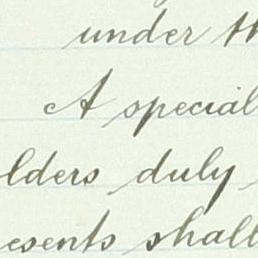 under th
A special
lders duly
esents shall